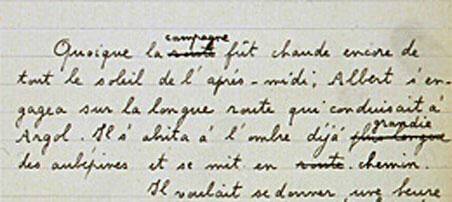 Quoique la campagne fût chaude encore de
tout le soleil de l'après-midi, Albert s'en-
gagea sur la longue route qui conduisait à
Argol. Il s'abrita à l'ombre déjà plus longue grandie
des aubépines et se mit en route chemin.
Il voulait se donner une heure